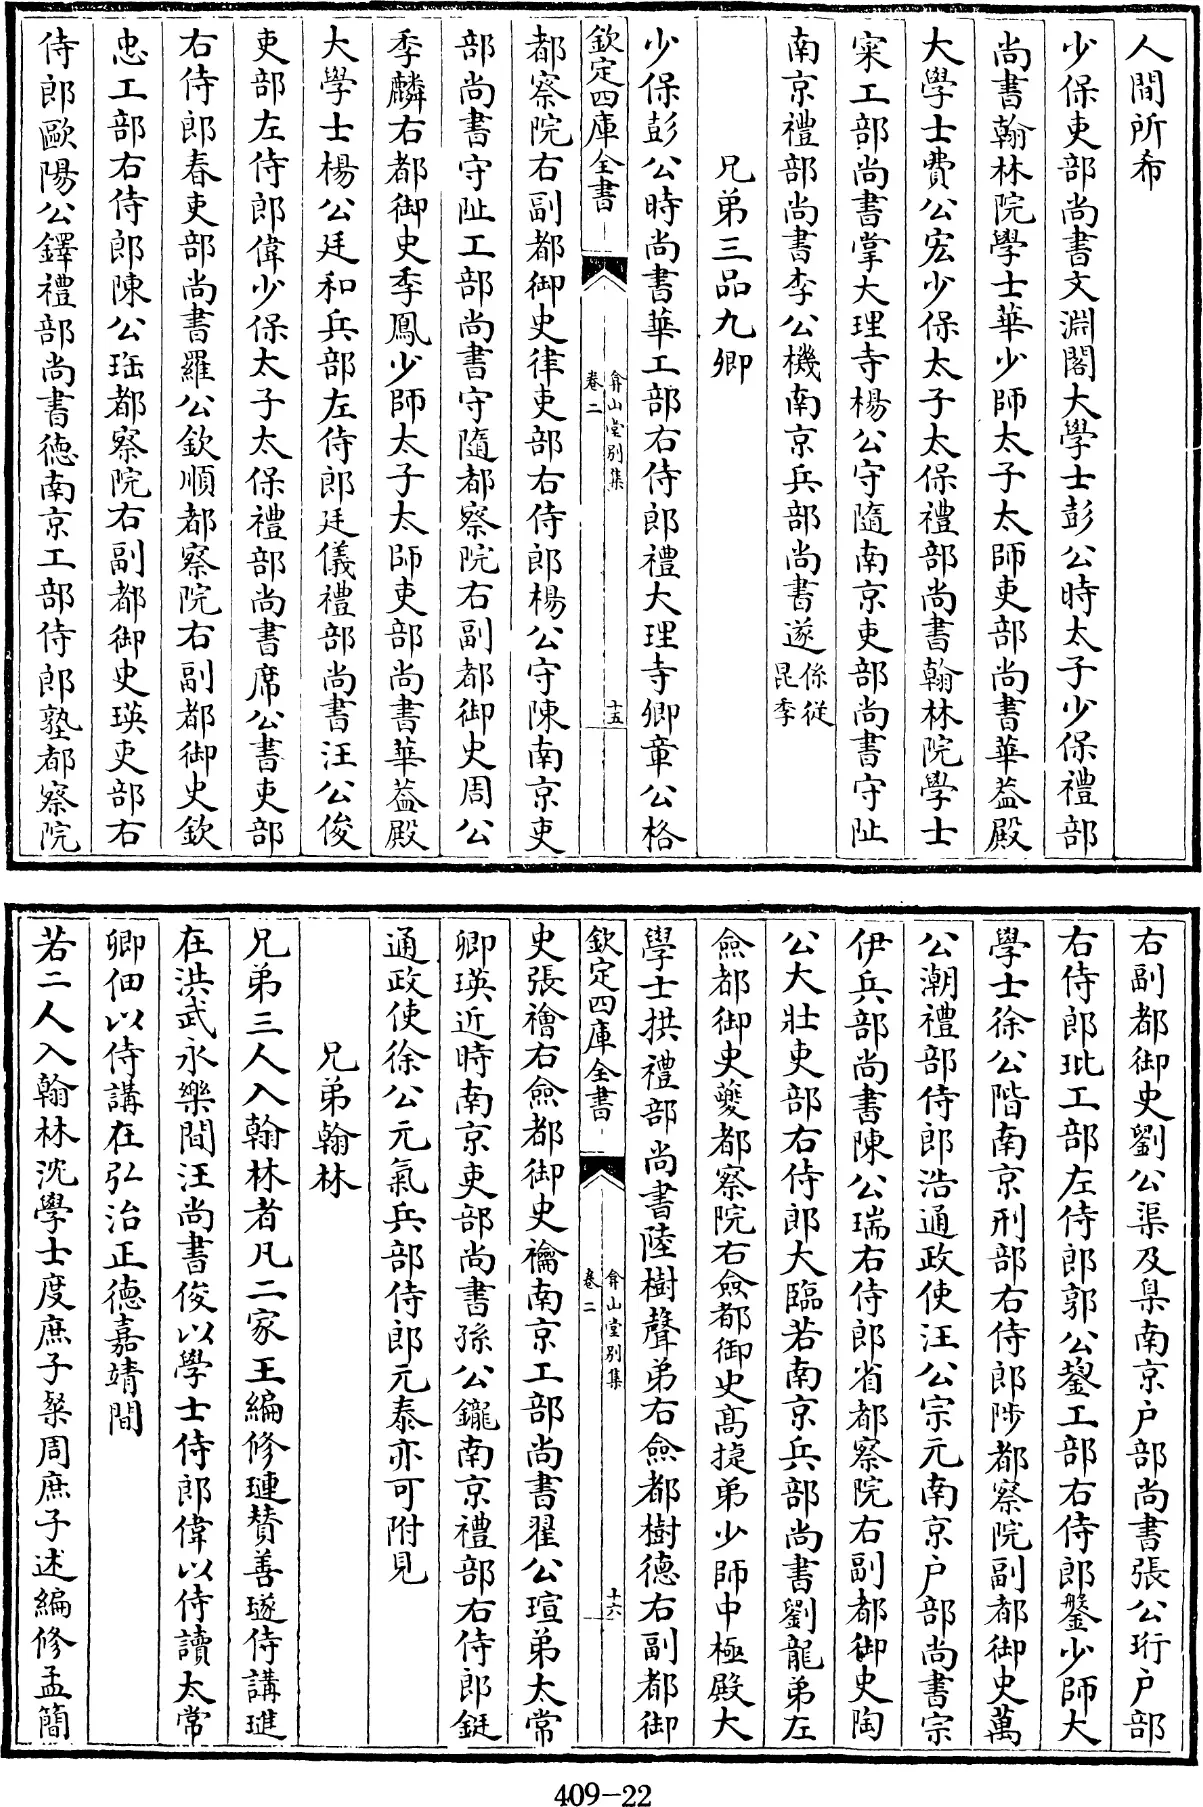 人間所希
少保吏部尚書文淵閣大學士彭公時太子少保禮部
尚書翰林院學士華少師太子太師吏部尚書華葢殿
大學士費公宏少保太子太保禮部尚書翰林院學士
寀工部尚書掌大理寺楊公守隨南京吏部尚書守阯
南京禮部尚書李公機南京兵部尚書遂係從
昆季
兄弟三品九卿
少保彭公時尚書華工部右侍郎禮大理寺卿章公格
欽定四庫全書
弇山堂別集
卷二
十五
都察院右副都御史律吏部右侍郎楊公守陳南京吏
部尚書守阯工部尚書守隨都察院右副都御史周公
季麟右都御史季鳳少師太子太師吏部尚書華葢殿
大學士楊公廷和兵部左侍郎廷儀禮部尚書汪公俊
吏部左侍郎偉少保太子太保禮部尚書席公書吏部
右侍郎春吏部尚書羅公欽順都察院右副都御史欽
忠工部右侍郎陳公珤都察院右副都御史瑛吏部右
侍郎歐陽公鐸禮部尚書德南京工部侍郎塾都察院
右副都御史劉公渠及臯南京户部尚書張公珩户部
右侍郎玭工部左侍郎郭公鋆工部右侍郎鑿少師大
學士徐公階南京刑部右侍郎陟都察院副都御史萬
公潮禮部侍郎浩通政使汪公宗元南京户部尚書宗
伊兵部尚書陳公瑞右侍郎省都察院右副都御史陶
公大壯吏部右侍郎大臨若南京兵部尚書劉龍弟左
僉都御史夔都察院右僉都御史髙捷弟少師中極殿大
學士拱禮部尚書陸樹聲弟右僉都樹德右副都御
欽定四庫全書
弇山堂別集
卷二
十六
史張襘右僉都御史禴南京工部尚書翟公瑄弟太常
卿瑛近時南京吏部尚書孫公鑨南京禮部右侍郎鋌
通政使徐公元氣兵部侍郎元泰亦可附見
兄弟翰林
兄弟三人入翰林者凡二家王編修璉賛善璲侍講璡
在洪武永樂間汪尚書俊以學士侍郎偉以侍讀太常
卿佃以侍講在弘治正德嘉靖間
若二人入翰林沈學士度庶子粲周庶子述編修孟簡
409-22